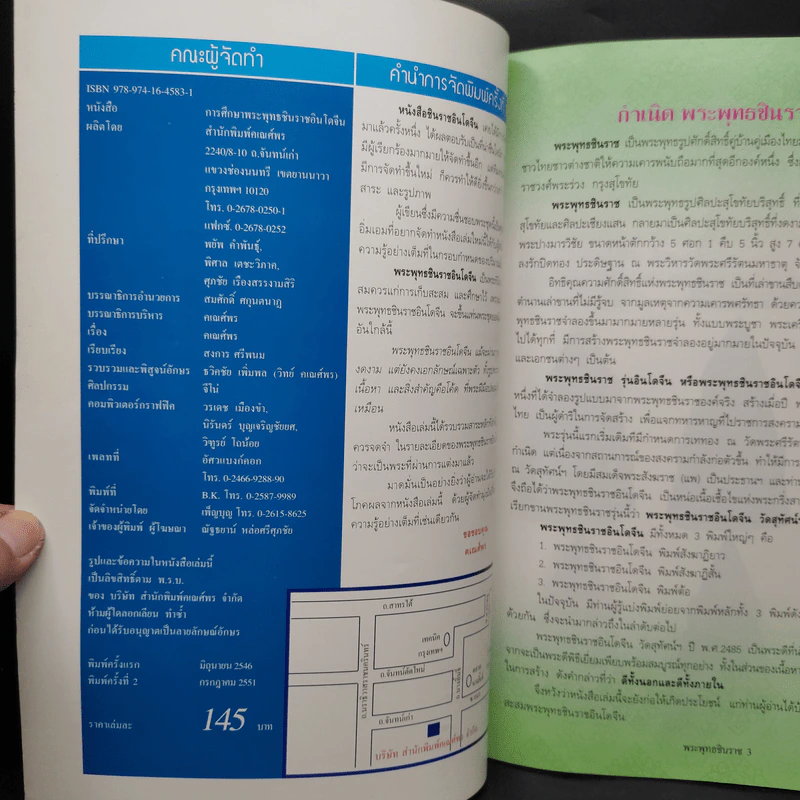 คณะผู้จัดทำ
ISBN 978-974-16-4583-1
หนังสือ การศึกษาพระพุทธชินราชอินโดจีน
ผลิตโดย สำนักพิมพ์คเณศ์พร
2240/8-10 ถ.จันทน์เก่า
แขวงช่องนนทรี เขตยานนาวา
กรุงเทพฯ 10120
โทร. 0-2678-0250-1
แฟกซ์. 0-2678-0252
ที่ปรึกษา พยัพ คำพันธุ์,
พิศาล เตชะวิภาค,
ศุภชัย เรืองสรรงามสิริ
บรรณาธิการอำนวยการ สมศักดิ์ ศกุนตนาฏ
บรรณาธิการบริหาร คเณศ์พร
เรื่อง คเณศ์พร
เรียบเรียง สงการ ศรีพนม
รวบรวมและพิสูจน์อักษร ธวัคชัย เพิ่มพล (วิทย์ คเณศ์พร)
ศิลปกรรม จีโน่
คอมพิวเตอร์กราฟฟิค วรเดช เมืองขำ,
นิรันดร์ บุญเจริญชัยยศ,
วิฑูรย์ โถน้อย
เพลทที่ อัศวแบงค์คอก
โทร. 0-2466-9288-90
พิมพ์ที่ B.K. โทร. 0-2587-9989
จัดจำหน่ายโดย เพ็ญบุญ โทร. 0-2615-8625
เจ้าของผู้พิมพ์ ผู้โฆษณา ณัฐธยาน์ หล่อศรีศุภชัย
รูปและข้อความในหนังสือเล่มนี้
เป็นลิขสิทธิ์ตาม พ.ร.บ.
ของ บริษัท สำนักพิมพ์คเณศ์พร จำกัด
ห้ามผู้ใดลอกเลียน ทำซ้ำ
ก่อนได้รับอนุญาตเป็นลายลักษณ์อักษร
พิมพ์ครั้งแรก มิถุนายน 2546
พิมพ์ครั้งที่ 2 กรกฎาคม 2551
ราคาเล่มละ 145 บาท
คำนำการจัดพิมพ์ครั้งที่
หนังสือชินราชอินโดจีน เคยได้
มาแล้วครั้งหนึ่ง ได้ผลตอบรับเป็นที่
มีผู้เรียกร้องมากมายให้จัดทำขึ้นอีก
มีการจัดทำขึ้นใหม่ ก็ควรทำให้ดียิ่งขึ้น
สาระ และรูปภาพ
ผู้เขียนซึ่งมีความชื่นชอบพระชุดนี้
อิ่มเอมที่อยากจัดทำหนังสือเล่มใหม่นี้ให้
ความรู้อย่างเต็มที่ในกรอบกำหนดของ
พระพุทธชินราชอินโดจีน เป็นพระที่
สมควรแก่การเก็บสะสม และศึกษาไว้
พระพุทธชินราชอินโดจีน จะขึ้นแท่น
อันใกล้นี้
พระพุทธชินราชอินโดจีน แม้จะ
งดงาม แต่ยังคงเอกลักษณ์เฉพาะตัว
เนื้อหา และสิ่งสำคัญคือโค้ด ที่พระพิธี
เหมือน
หนังสือเล่มนี้ได้รวบรวมสาระหลัก
ควรจดจำ ในรายละเอียดของพระพุทธชินราช
ว่าจะเป็นพระที่ผ่านการแต่งมาแล้ว
มาดมั่นเป็นอย่างยิ่งว่าผู้อ่านจะได้
โภคผลจากหนังสือเล่มนี้ ด้วยผู้จัดทำ
ความรู้อย่างเต็มที่เช่นเดียวกัน
ขอขอบคุณ
คเณศ์พร
ถ.สาทรใต้
เทคนิคกรุงเทพฯ
ถ.นราธิวาสราชนครินทร์
ถ.จันทน์ตัดใหม่
ถ.จันทน์เก่า
บริษัท สำนักพิมพ์คเณศ์พร จำกัด
กำเนิด พระพุทธชินรา
พระพุทธชินราช เป็นพระพุทธรูปศักดิ์สิทธิ์คู่บ้านคู่เมืองไทย
ชาวไทยชาวต่างชาติให้ความเคารพนับถือมากที่สุดอีกองค์หนึ่ง ซึ่ง
ราชวงศ์พระร่วง กรุงสุโขทัย
พระพุทธชินราช เป็นพระพุทธรูปศิลปะสุโขทัยบริสุทธิ์ ที่
สุโขทัยและศิลปะเชียงแสน กลายมาเป็นศิลปะสุโขทัยบริสุทธิ์ที่งดงา
พระปางมารวิชัย ขนาดหน้าตักกว้าง 5 ศอก 1 คืบ 5 นิ้ว สูง 7
ลงรักปิดทอง ประดิษฐาน ณ พระวิหารวัดพระศรีรัตนมหาธาตุ จั
อิทธิคุณความศักดิ์สิทธิ์แห่งพระพุทธชินราช เป็นที่เล่าขานสืบ
ตำนานเล่าขานที่ไม่มีรู้จบ จากมูลเหตุจากความเคารพศรัทธา ด้วยคว
พุทธชินราชจำลองขึ้นมามากมายหลายรุ่น ทั้งแบบพระบูชา พระเครื่
ไปได้ทุกที่ มีการสร้างพระพุทธชินราชจำลองอยู่มากมายในปัจจุบัน
และเอกชนต่างๆ เป็นต้น
พระพุทธชินราช รุ่นอินโดจีน หรือพระพุทธชินราชอินโด
หนึ่งที่ได้จำลองรูปแบบมาจากพระพุทธชินราชองค์จริง สร้างเมื่อปี พ
ไทย เป็นผู้ดำริในการจัดสร้าง เพื่อแจกทหารหาญที่ไปราชการสงคราม
พระรุ่นนี้แรกเริ่มเดิมทีมีกำหนดการเททอง ณ วัดพระศรีรัต
กำเนิด แต่เนื่องจากสถานการณ์ของสงครามกำลังก่อตัวขึ้น ทำให้มีการ
ณ วัดสุทัศน์ฯ โดยมีสมเด็จพระสังฆราช (แพ) เป็นประธานฯ และท่า
จึงถือได้ว่าพระพุทธชินราชอินโดจีน เป็นหน่อเนื้อเชื้อไขแห่งพระกริ่งสา
เรียกขานพระพุทธชินราชรุ่นนี้ว่า พระพุทธชินราชอินโดจีน วัดสุทัศน์ฯ
พระพุทธชินราชอินโดจีน มีทั้งหมด 3 พิมพ์ใหญ่ๆ คือ
1. พระพุทธชินราชอินโดจีน พิมพ์สังฆาฏิยาว
2. พระพุทธชินราชอินโดจีน พิมพ์สังฆาฏิสั้น
3. พระพุทธชินราชอินโดจีน พิมพ์ต้อ
ในปัจจุบัน มีท่านผู้รู้แบ่งพิมพ์ย่อยจากพิมพ์หลักทั้ง 3 พิมพ์ดัง
ด้วยกัน ซึ่งจะนำมากล่าวถึงในลำดับต่อไป
พระพุทธชินราชอินโดจีน วัดสุทัศน์ฯ ปี พ.ศ.2485 เป็นพระดีที่น
จากจะเป็นพระดีพิธีเยี่ยมเพียบพร้อมสมบูรณ์ทุกอย่าง ทั้งในส่วนของเนื้อหา
ในการสร้าง ดังคำกล่าวที่ว่า ดีทั้งนอกและดีทั้งภายใน
จึงหวังว่าหนังสือเล่มนี้จะยังก่อให้เกิดประโยชน์ แก่ท่านผู้อ่านได้บ้
สะสมพระพุทธชินราชอินโดจีน
พระพุทธชินราช 3